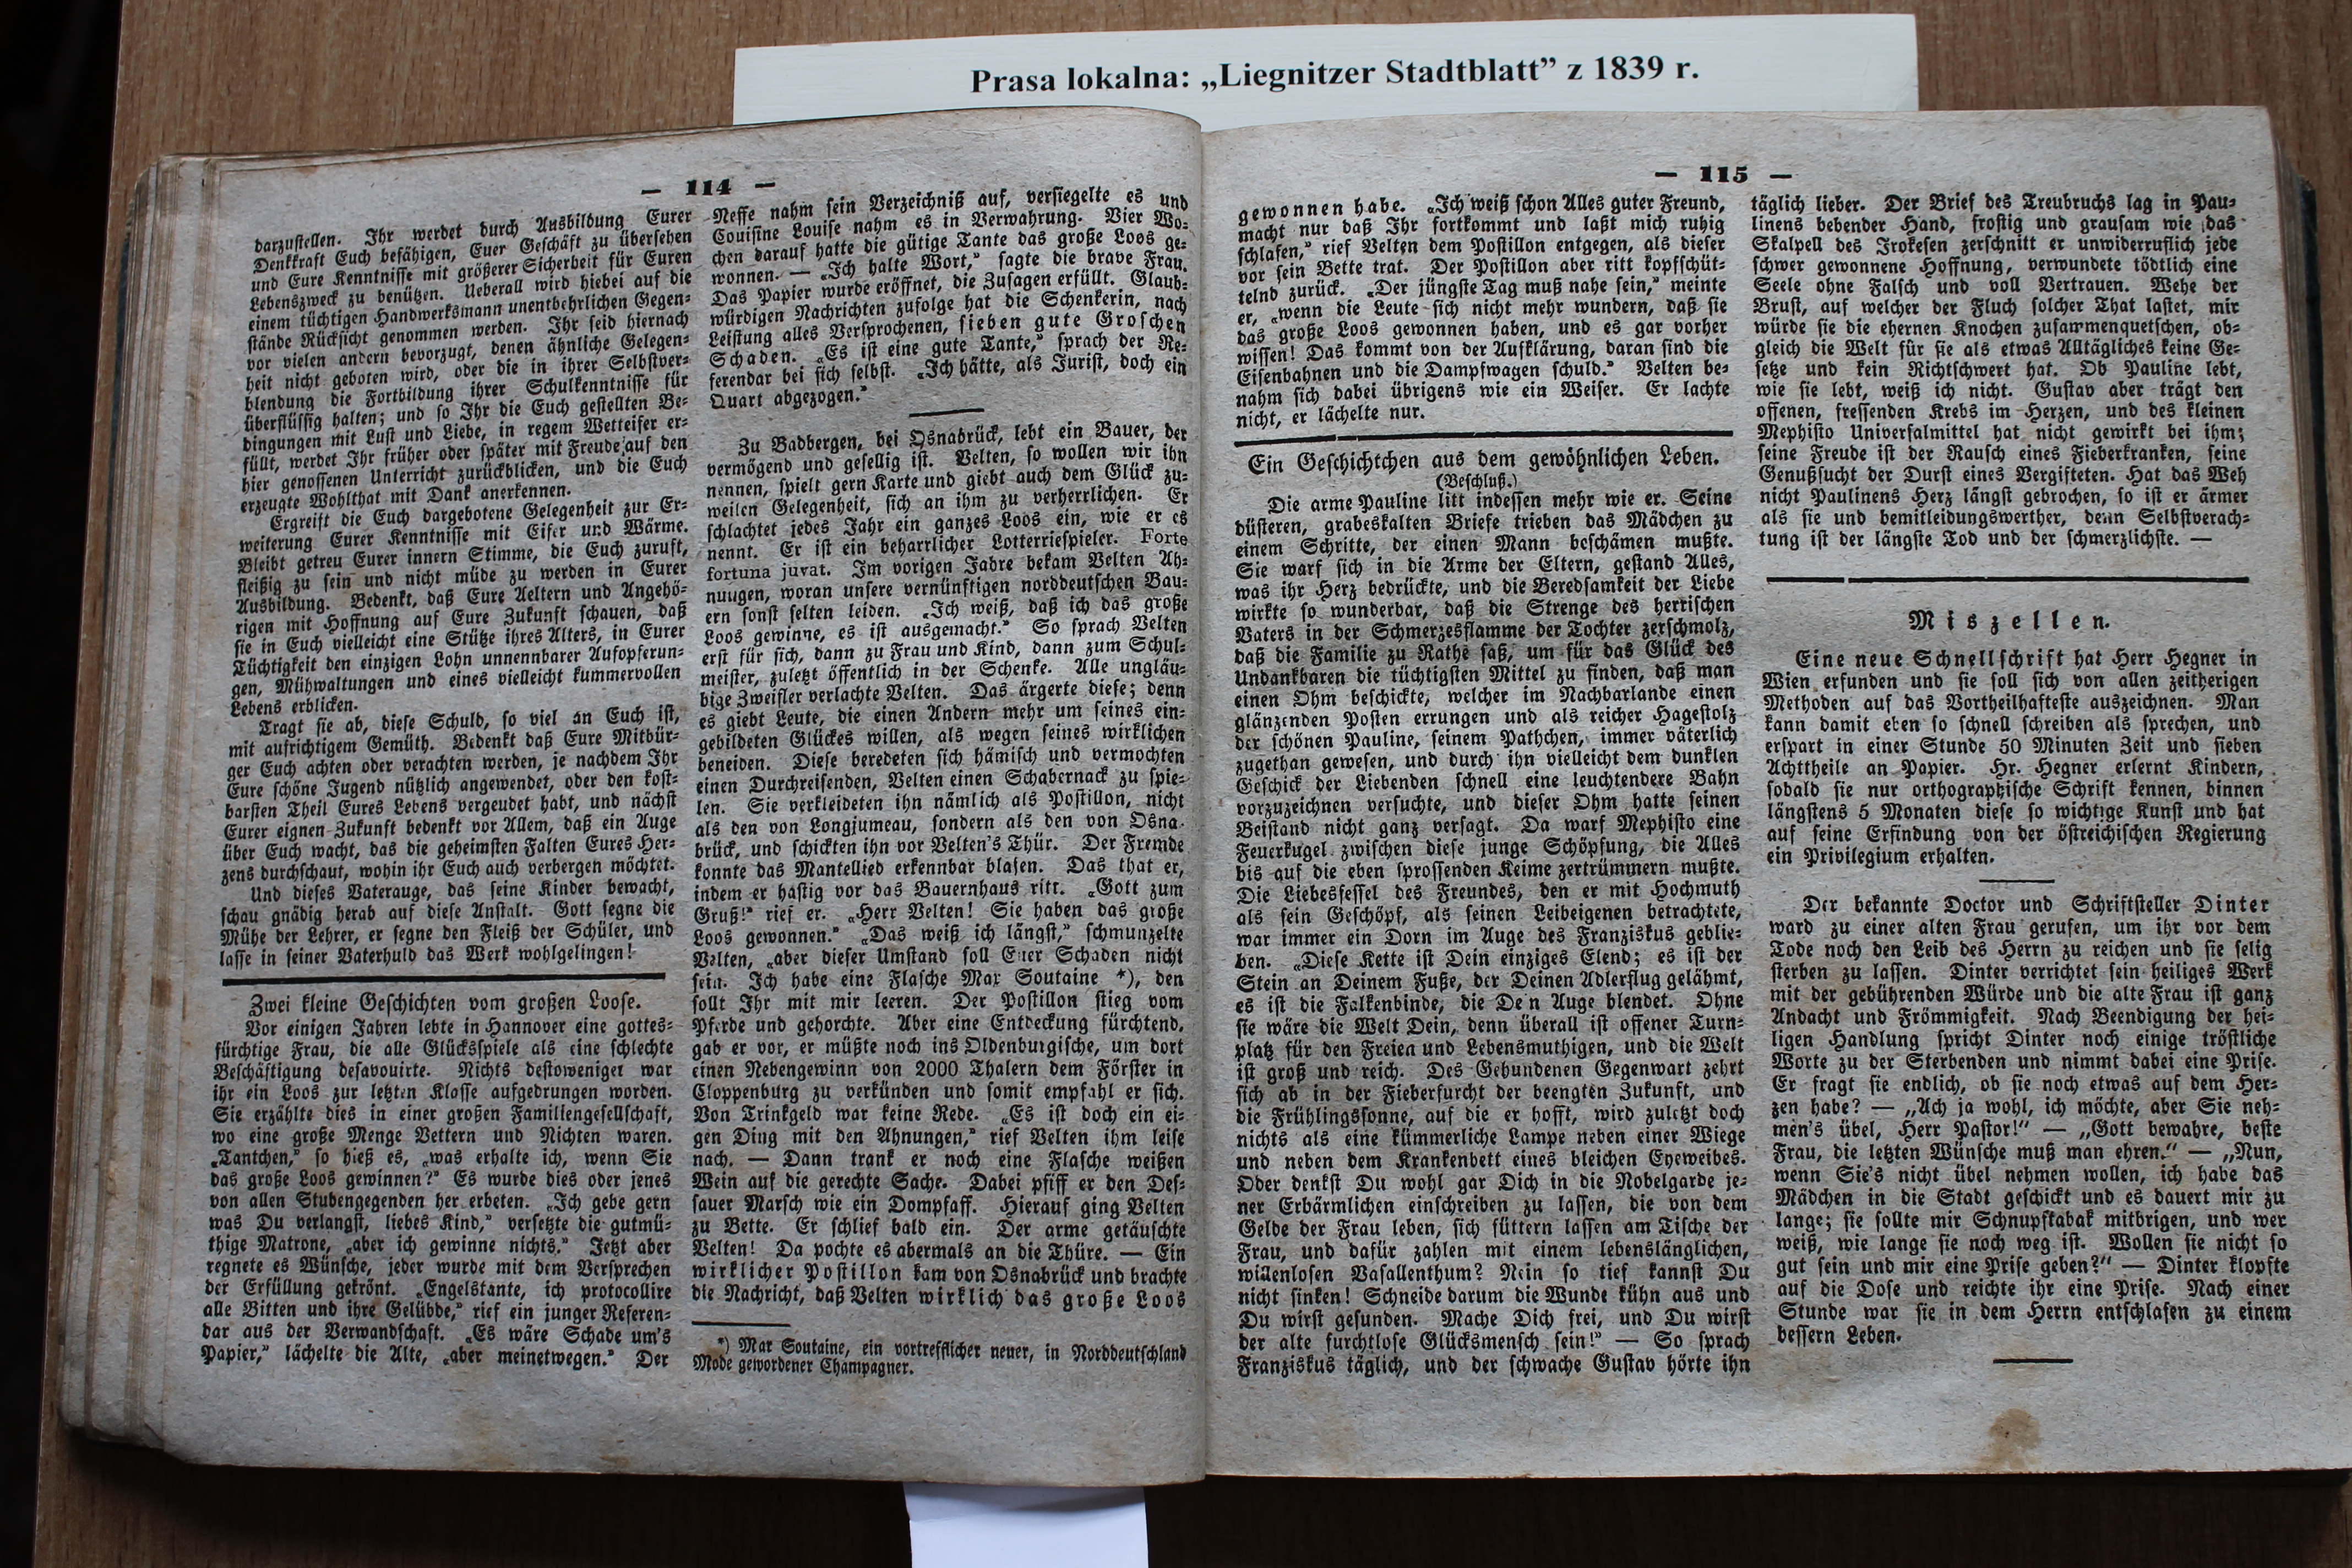 Prasa lokalna: „Liegnitzer Stadtblatt” z 1839 r.
— 114 —
darzustellen. Ihr werdet durch Ausbildung Eurer
Denkkraft Euch befähigen, Euer Geschäft zu übersehen
und Eure Kenntnisse mit größerer Sicherheit für Euren
Lebenszweck zu benützen. Ueberall wird hiebei auf die
einem tüchtigen Handwerksmann unentbehrlichen Gegen-
stände Rücksicht genommen werden. Ihr seid hiernach
vor vielen andern bevorzugt, denen ähnliche Gelegen-
heit nicht geboten wird, oder die in ihrer Selbstver-
blendung die Fortbildung ihrer Schulkenntnisse für
überflüssig halten; und so Ihr die Euch gestellten Be-
dingungen mit Lust und Liebe, in regem Wetteifer er-
füllt, werdet Ihr früher oder später mit Freude auf den
hier genossenen Unterricht zurückblicken, und die Euch
erzeugte Wohlthat mit Dank anerkennen.
Ergreift die Euch dargebotene Gelegenheit zur Er-
weiterung Eurer Kenntnisse mit Eifer und Wärme.
Bleibt getreu Eurer innern Stimme, die Euch zuruft,
fleißig zu sein und nicht müde zu werden in Eurer
Ausbildung. Bedenkt, daß Eure Aeltern und Angehö-
rigen mit Hoffnung auf Eure Zukunft schauen, daß
sie in Euch vielleicht eine Stütze ihres Alters, in Eurer
Tüchtigkeit den einzigen Lohn unnennbarer Aufopferun-
gen, Mühwaltungen und eines vielleicht kummervollen
Lebens erblicken.
Tragt sie ab, diese Schuld, so viel an Euch ist,
mit aufrichtigem Gemüth. Bedenkt daß Eure Mitbür-
ger Euch achten oder verachten werden, je nachdem Ihr
Eure schöne Jugend nützlich angewendet, oder den kost-
barsten Theil Eures Lebens vergeudet habt, und nächst
Eurer eignen Zukunft bedenkt vor Allem, daß ein Auge
über Euch wacht, das die geheimsten Falten Eures Her-
zens durchschaut, wohin ihr Euch auch verbergen möchtet.
Und dieses Vaterauge, das seine Kinder bewacht,
schau gnädig herab auf diese Anstalt. Gott segne die
Mühe der Lehrer, er segne den Fleiß der Schüler, und
lasse in seiner Vaterhuld das Werk wohlgelingen!
Zwei kleine Geschichten vom großen Loose.
Vor einigen Jahren lebte in Hannover eine gottes-
fürchtige Frau, die alle Glücksspiele als eine schlechte
Beschäftigung desavouirte. Nichts destoweniger war
ihr ein Loos zur letzten Klasse aufgedrungen worden.
Sie erzählte dies in einer großen Familiengesellschaft,
wo eine große Menge Vettern und Nichten waren.
„Tantchen,“ so hieß es, „was erhalte ich, wenn Sie
das große Loos gewinnen?“ Es wurde dies oder jenes
von allen Stubengegenden her erbeten. „Ich gebe gern
was Du verlangst, liebes Kind,“ versetzte die gutmü-
thige Matrone, „aber ich gewinne nichts.“ Jetzt aber
regnete es Wünsche, jeder wurde mit dem Versprechen
der Erfüllung gekrönt. „Engelstante, ich protocollire
alle Bitten und ihre Gelübde,“ rief ein junger Referen-
dar aus der Verwandschaft. „Es wäre Schade um's
Papier,“ lächelte die Alte, „aber meinetwegen.“ Der
Neffe nahm sein Verzeichniß auf, versiegelte es und
Cousine Louise nahm es in Verwahrung. Vier Wo-
chen darauf hatte die gütige Tante das große Loos ge-
wonnen. — „Ich halte Wort,“ sagte die brave Frau.
Das Papier wurde eröffnet, die Zusagen erfüllt. Glaub-
würdigen Nachrichten zufolge hat die Schenkerin, nach
Leistung alles Versprochenen, sieben gute Groschen
Schaden. „Es ist eine gute Tante,“ sprach der Re-
ferendar bei sich selbst. „Ich hätte, als Jurist, doch ein
Quart abgezogen.“
Zu Badbergen, bei Osnabrück, lebt ein Bauer, der
vermögend und gesellig ist. Velten, so wollen wir ihn
nennen, spielt gern Karte und giebt auch dem Glück zu-
weilen Gelegenheit, sich an ihm zu verherrlichen. Er
schlachtet jedes Jahr ein ganzes Loos ein, wie er es
nennt. Er ist ein beharrlicher Lotterriespieler. Forte
fortuna juvat. Im vorigen Jahre bekam Velten Ah-
nungen, woran unsere vernünftigen norddeutschen Bau-
ern sonst selten leiden. „Ich weiß, daß ich das große
Loos gewinne, es ist ausgemacht.“ So sprach Velten
erst für sich, dann zu Frau und Kind, dann zum Schul-
meister, zuletzt öffentlich in der Schenke. Alle ungläu-
bige Zweifler verlachte Velten. Das ärgerte diese; denn
es giebt Leute, die einen Andern mehr um seines ein-
gebildeten Glückes willen, als wegen seines wirklichen
beneiden. Diese beredeten sich hämisch und vermochten
einen Durchreisenden, Velten einen Schabernack zu spie-
len. Sie verkleideten ihn nämlich als Postillon, nicht
als den von Longjumeau, sondern als den von Osna-
brück, und schickten ihn vor Velten's Thür. Der Fremde
konnte das Mantellied erkennbar blasen. Das that er,
indem er hastig vor das Bauernhaus ritt. „Gott zum
Gruß!“ rief er. „Herr Velten! Sie haben das große
Loos gewonnen.“ „Das weiß ich längst,“ schmunzelte
Velten, „aber dieser Umstand soll Euer Schaden nicht
sein. Ich habe eine Flasche Max Soutaine *), den
sollt Ihr mit mir leeren. Der Postillon stieg vom
Pferde und gehorchte. Aber eine Entdeckung fürchtend,
gab er vor, er müßte noch ins Oldenburgische, um dort
einen Nebengewinn von 2000 Thalern dem Förster in
Cloppenburg zu verkünden und somit empfahl er sich.
Von Trinkgeld war keine Rede. „Es ist doch ein ei-
gen Ding mit den Ahnungen,“ rief Velten ihm leise
nach. — Dann trank er noch eine Flasche weißen
Wein auf die gerechte Sache. Dabei pfiff er den Des-
sauer Marsch wie ein Dompfaff. Hierauf ging Velten
zu Bette. Er schlief bald ein. Der arme getäuschte
Velten! Da pochte es abermals an die Thüre. — Ein
wirklicher Postillon kam von Osnabrück und brachte
die Nachricht, daß Velten wirklich das große Loos
*) Max Soutaine, ein vortrefflicher neuer, in Norddeutschland
Mode gewordener Champagner.
— 115 —
gewonnen habe. „Ich weiß schon Alles guter Freund,
macht nur daß Ihr fortkommt und laßt mich ruhig
schlafen,“ rief Velten dem Postillon entgegen, als dieser
vor sein Bette trat. Der Postillon aber ritt kopfschüt-
telnd zurück. „Der jüngste Tag muß nahe sein,“ meinte
er, „wenn die Leute sich nicht mehr wundern, daß sie
das große Loos gewonnen haben, und es gar vorher
wissen! Das kommt von der Aufklärung, daran sind die
Eisenbahnen und die Dampfwagen schuld.“ Velten be-
nahm sich dabei übrigens wie ein Weiser. Er lachte
nicht, er lächelte nur.
Ein Geschichtchen aus dem gewöhnlichen Leben.
(Beschluß.)
Die arme Pauline litt indessen mehr wie er. Seine
düsteren, grabeskalten Briefe trieben das Mädchen zu
einem Schritte, der einen Mann beschämen mußte.
Sie warf sich in die Arme der Eltern, gestand Alles,
was ihr Herz bedrückte, und die Beredsamkeit der Liebe
wirkte so wunderbar, daß die Strenge des herrischen
Vaters in der Schmerzesflamme der Tochter zerschmolz,
daß die Familie zu Rathe saß, um für das Glück des
Undankbaren die tüchtigsten Mittel zu finden, daß man
einen Ohm beschickte, welcher im Nachbarlande einen
glänzenden Posten errungen und als reicher Hagestolz
der schönen Pauline, seinem Pathchen, immer väterlich
zugethan gewesen, und durch ihn vielleicht dem dunklen
Geschick der Liebenden schnell eine leuchtendere Bahn
vorzuzeichnen versuchte, und dieser Ohm hatte seinen
Beistand nicht ganz versagt. Da warf Mephisto eine
Feuerkugel zwischen diese junge Schöpfung, die Alles
bis auf die eben sprossenden Keime zertrümmern mußte.
Die Liebesfessel des Freundes, den er mit Hochmuth
als sein Geschöpf, als seinen Leibeigenen betrachtete,
war immer ein Dorn im Auge des Franziskus geblie-
ben. „Diese Kette ist Dein einziges Elend; es ist der
Stein an Deinem Fuße, der Deinen Adlerflug gelähmt,
es ist die Falkenbinde, die De'n Auge blendet. Ohne
sie wäre die Welt Dein, denn überall ist offener Turn-
platz für den Freien und Lebensmuthigen, und die Welt
ist groß und reich. Des Gebundenen Gegenwart zehrt
sich ab in der Fieberfurcht der beengten Zukunft, und
die Frühlingssonne, auf die er hofft, wird zuletzt doch
nichts als eine kümmerliche Lampe neben einer Wiege
und neben dem Krankenbett eines bleichen Eheweibes.
Oder denkst Du wohl gar Dich in die Nobelgarde je-
ner Erbärmlichen einschreiben zu lassen, die von dem
Gelde der Frau leben, sich füttern lassen am Tische der
Frau, und dafür zahlen mit einem lebenslänglichen,
willenlosen Vasallenthum? Nein so tief kannst Du
nicht sinken! Schneide darum die Wunde kühn aus und
Du wirst gesunden. Mache Dich frei, und Du wirst
der alte furchtlose Glücksmensch sein!“ — So sprach
Franziskus täglich, und der schwache Gustav hörte ihn
täglich lieber. Der Brief des Treubruchs lag in Pau-
linens bebender Hand, frostig und grausam wie das
Skalpell des Irokesen zerschnitt er unwiderruflich jede
schwer gewonnene Hoffnung, verwundete tödtlich eine
Seele ohne Falsch und voll Vertrauen. Wehe der
Brust, auf welcher der Fluch solcher That lastet, mir
würde sie die ehernen Knochen zusammenquetschen, ob-
gleich die Welt für sie als etwas Alltägliches keine Ge-
setze und kein Richtschwert hat. Ob Pauline lebt,
wie sie lebt, weiß ich nicht. Gustav aber trägt den
offenen, fressenden Krebs im Herzen, und des kleinen
Mephisto Universalmittel hat nicht gewirkt bei ihm;
seine Freude ist der Rausch eines Fieberkranken, seine
Genußsucht der Durst eines Vergifteten. Hat das Weh
nicht Paulinens Herz längst gebrochen, so ist er ärmer
als sie und bemitleidungswerther, denn Selbstverach-
tung ist der längste Tod und der schmerzlichste. —
Miszellen.
Eine neue Schnellschrift hat Herr Hegner in
Wien erfunden und sie soll sich von allen zeitherigen
Methoden auf das Vortheilhafteste auszeichnen. Man
kann damit eben so schnell schreiben als sprechen, und
erspart in einer Stunde 50 Minuten Zeit und sieben
Achttheile an Papier. Hr. Hegner erlernt Kindern,
sobald sie nur orthographische Schrift kennen, binnen
längstens 5 Monaten diese so wichtige Kunst und hat
auf seine Erfindung von der östreichischen Regierung
ein Privilegium erhalten.
Der bekannte Doctor und Schriftsteller Dinter
ward zu einer alten Frau gerufen, um ihr vor dem
Tode noch den Leib des Herrn zu reichen und sie selig
sterben zu lassen. Dinter verrichtet sein heiliges Werk
mit der gebührenden Würde und die alte Frau ist ganz
Andacht und Frömmigkeit. Nach Beendigung der hei-
ligen Handlung spricht Dinter noch einige tröstliche
Worte zu der Sterbenden und nimmt dabei eine Prise.
Er fragt sie endlich, ob sie noch etwas auf dem Her-
zen habe? — „Ach ja wohl, ich möchte, aber Sie neh-
men's übel, Herr Pastor!“ — „Gott bewahre, beste
Frau, die letzten Wünsche muß man ehren.“ — „Nun,
wenn Sie's nicht übel nehmen wollen, ich habe das
Mädchen in die Stadt geschickt und es dauert mir zu
lange; sie sollte mir Schnupftabak mitbrigen, und wer
weiß, wie lange sie noch weg ist. Wollen sie nicht so
gut sein und mir eine Prise geben?“ — Dinter klopfte
auf die Dose und reichte ihr eine Prise. Nach einer
Stunde war sie in dem Herrn entschlafen zu einem
bessern Leben.